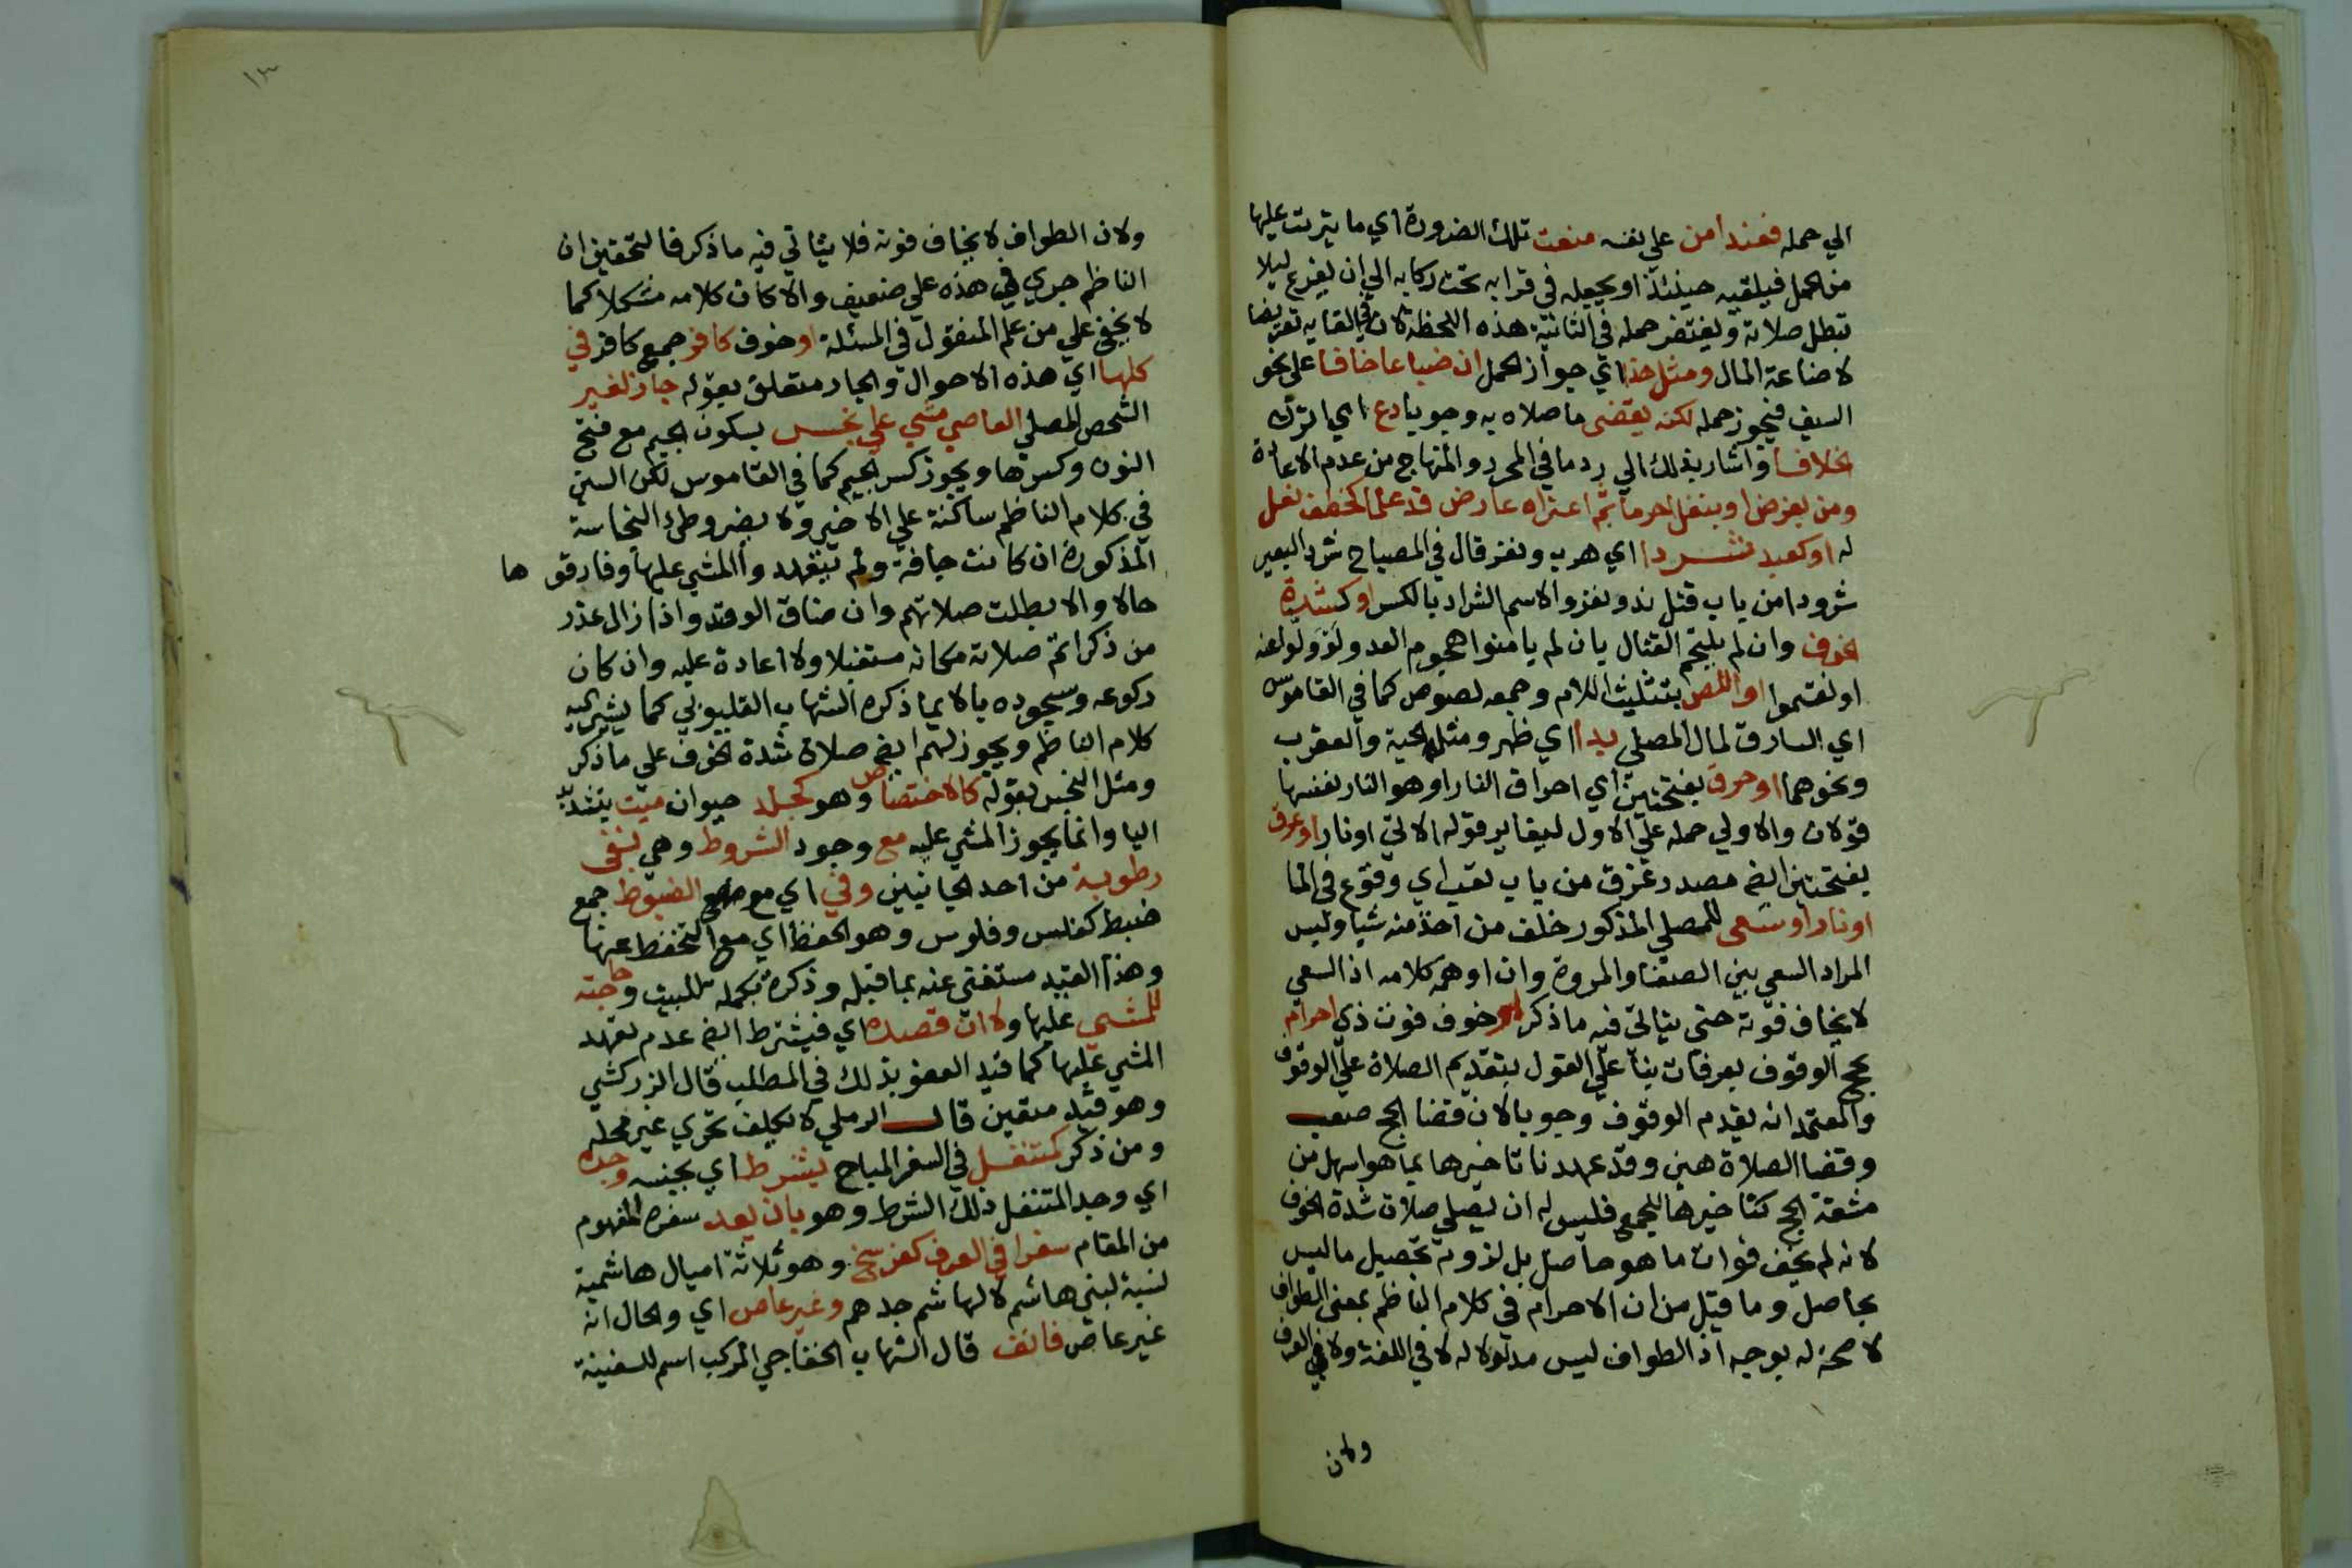 الي حمله فعند امن علي نفسه منعت تلك الضرورة اي ما يترتب عليها
من الحمل فيلقيه حينئذ او يجعله في قرابه تحت ركابه الي ان يفرغ ليلا
تبطل صلاته ويغتفر حمله في الثانية هذه اللحظة لان في القايه تعريضا
لاضاعة المال ومثل خذا اي جواز الحمل ان ضياعا خافا علي نحو
السيف فيجوز حمله لكنه يقضي ما صلاه به وجوبا دع اي اترك
خلافا واشار بذلك الي رد ما في المحرر والمنهاج من عدم الاعادة
ومن بفرض او بنفل احرما ثم اعتراه عارض قد علما كخطف نعل
له او كعبد شردا اي هرب ونفر قال في المصباح شرد البعير
شرودا من باب قتل ند ونفر والاسم الشراد بالكسر او كشدة
خوف وان لم يلتحم القتال بان لم يامنوا هجوم العدو لو ولوا عنه
او انقسموا او اللص بتثليث اللام وجمعه لصوص كما في القاموس
اي السارق لمال المصلي بدا اي ظهر ومثله الحية والعقرب
ونحوهما او حرق بفتحتين اي احراق النار او هو النار نفسها
قولان والاولي حمله علي الاول ليغاير قوله الاتي او نار او غرق
بفتحتين ايض مصدر غرق من باب تعب اي وقوع في الما
او نار او سعي للمصلي المذكور خلف من اخذ منه شيا وليس
المراد السعي بين الصفا والمروة وان اوهمه كلامه اذ السعي
لا يخاف فوته حتي يتاتي فيه ما ذكر او خوف فوت ذي احرام
بحج الوقوف بعرفات بنا علي القول بتقديم الصلاة علي الوقوف
والمعتمد انه يقدم الوقوف وجوبا لان قضا الحج صعب
وقضا الصلاة هين وقد عهدنا تاخيرها بما هو اسهل من
مشقة الحج كتاخيرها للجمع فليس له ان يصلي صلاة شدة الخوف
لانه لم يخف فوات ما هو حاصل بل لزوته تحصيل ما ليس
بحاصل وما قيل من ان الاحرام في كلام الناظم بمعني الطواف
لا صحة له بوجه اذ الطواف ليس مدلولا له لا في اللغة ولا في العرف
ولان
١٣
ولان الطواف لا يخاف فوته فلا يتاتي فيه ما ذكر فالتحقيق ان
الناظم جري في هذه علي ضعيف والا كان كلامه مشكلا كما
لا يخفي علي من علم المنقول في المسئلة او خوف كافر جمع كافر في
كلها اي هذه الاحوال والجار متعلق بقوله جاز لغير
الشخص المصلي العاصي مشي علي نجس بسكون الجيم مع فتح
النون وكسرها ويجوز كسر الجيم كما في القاموس لكن السين
في كلام الناظم ساكنة علي الاخير ولا يضر وطي النجاسة
المذكورة ان كانت جافة ولم يتعهدوا المشي عليها وفارقو ها
حالا والا بطلت صلاتهم وان ضاق الوقت واذا زال عذر
من ذكر اتم صلاته مكانه مستقبلا ولا اعادة عليه وان كان
ركوعه وسجوده بالايما ذكره الشهاب القليوبي كما يشير اليه
كلام الناظم ويجوز لهم ايض صلاة شدة الخوف علي ما ذكر
ومثل النجس بقوله كالاختصاص وهو كجلد حيوان ميت بتشديد
اليا وانما يجوز المشي عليه مع وجود الشروط وهي نفي
رطوبة من احد الجانبين وفي اي مع الضبوط جمع
ضبط كفلس وفلوس وهو الحفظ اي مع التحفظ عنها
وهذا القيد مستغني عنه بما قبله وذكره تكملة للبيت وحاجته
للمشي عليها ولا ان قصده اي فيشترط ايض عدم تعهد
المشي عليها كما قيد العفو بذلك في المطلب قال الزركشي
وهو قيد متعين قال الرملي لا يكلف تحري غير محله
ومن ذكر كمتنفل في السفر المباح بشرط اي بجنسه وجده
اي وجد المتنفل ذلك الشرط وهو بان يعد سفره المفهوم
من المقام سفرا في العرف كفرسخ وهو ثلاثة اميال هاشمية
نسبة لبني هاشم لا لهاشم جدهم وغير عاص اي والحال انه
غير عاص فانف قال الشهاب الخفاجي المركب اسم للسفينة